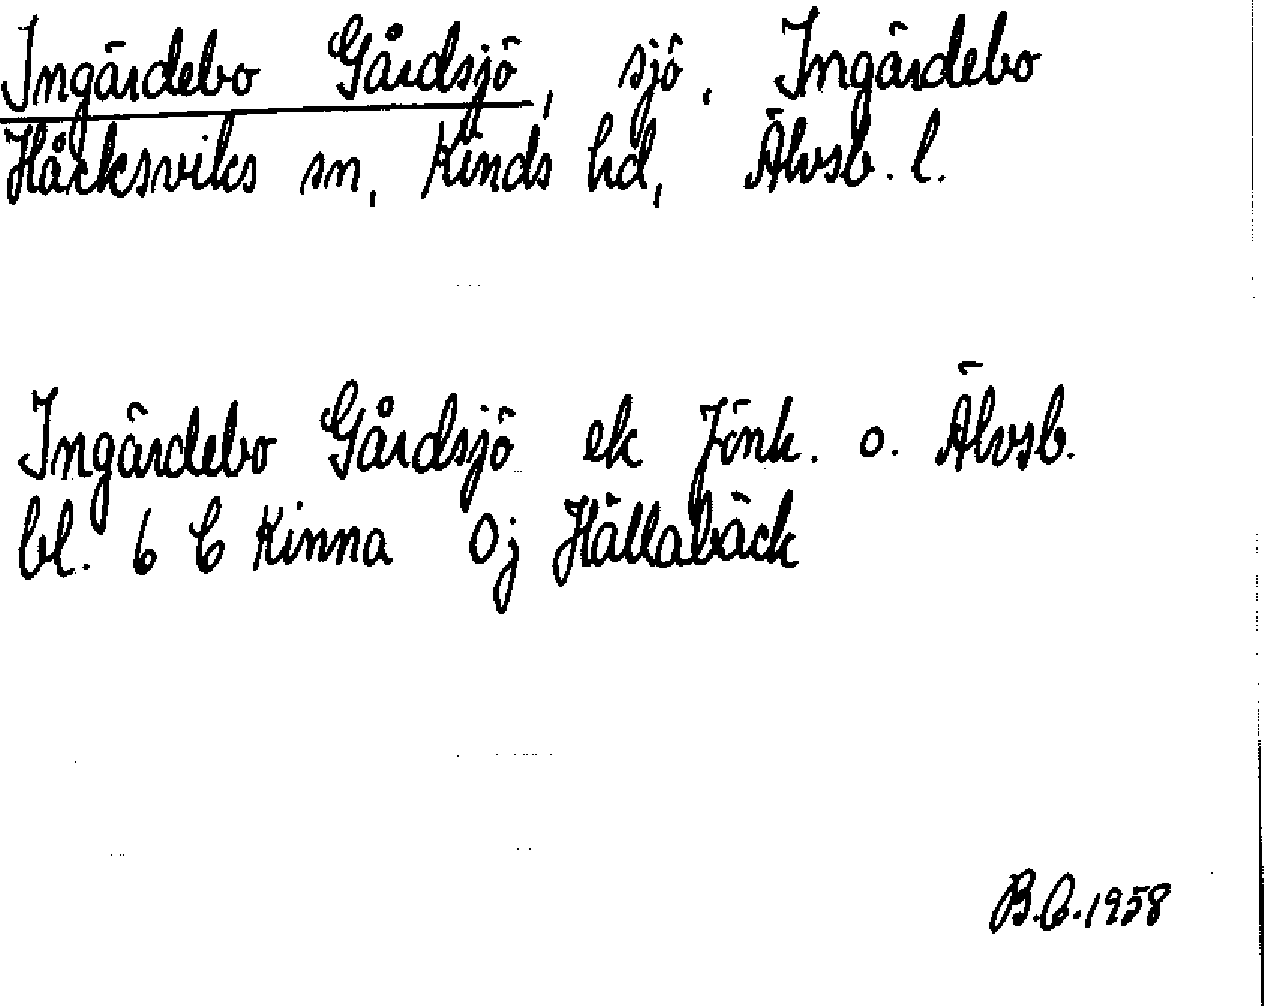 Ingärdebo Gårdsjö, sjö, Ingärdebo
Håcksviks sn, Kinds hd, Älvsb. l.
Ingärdebo Gårdsjö ek Jönk. o. Älvsb.
bl. 6 C Kinna Oj Hällabäck
B.C. 1958